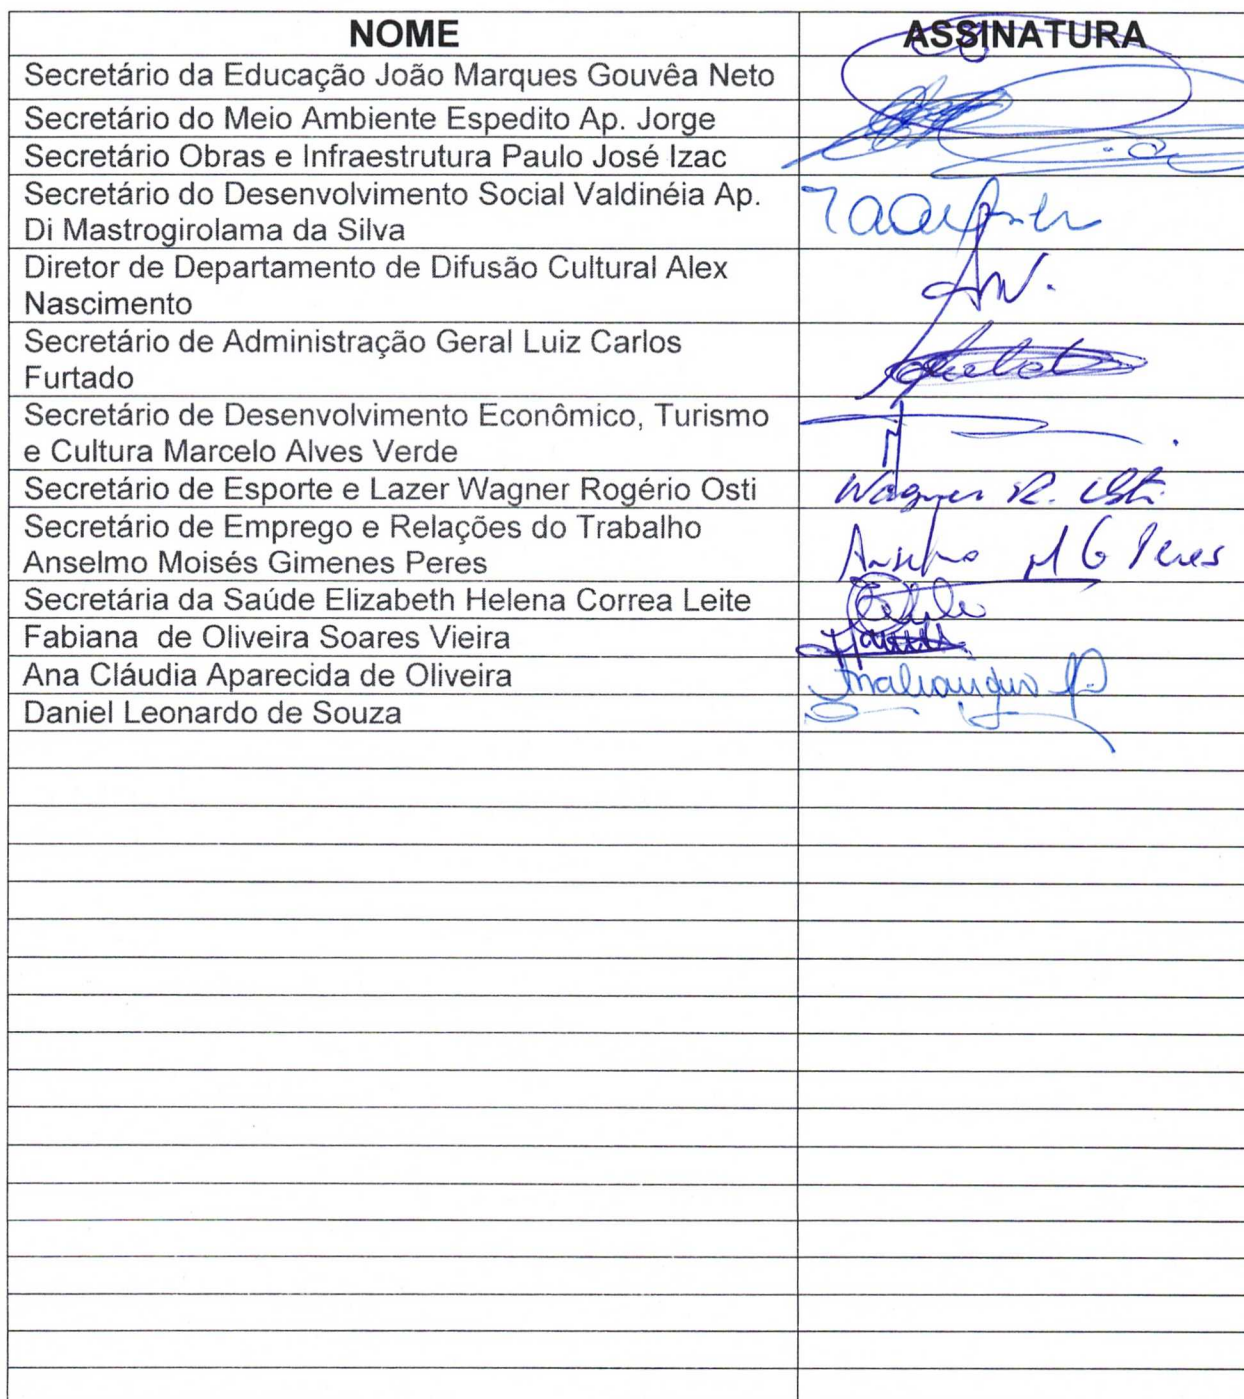 NOME ASSINATURA
Secretário da Educação João Marques Gouvêa Neto
Secretário do Meio Ambiente Espedito Ap. Jorge
Secretário Obras e Infraestrutura Paulo José Izac
Secretário do Desenvolvimento Social Valdinéia Ap.
Di Mastrogirolama da Silva
Diretor de Departamento de Difusão Cultural Alex
Nascimento
AN.
Secretário de Administração Geral Luiz Carlos
Furtado
Secretário de Desenvolvimento Econômico, Turismo
e Cultura Marcelo Alves Verde
Secretário de Esporte e Lazer Wagner Rogério Osti Wagner R. Osti
Secretário de Emprego e Relações do Trabalho
Anselmo Moisés Gimenes Peres Anselmo M G Peres
Secretária da Saúde Elizabeth Helena Correa Leite
Fabiana  de Oliveira Soares Vieira
Ana Cláudia Aparecida de Oliveira
Daniel Leonardo de Souza